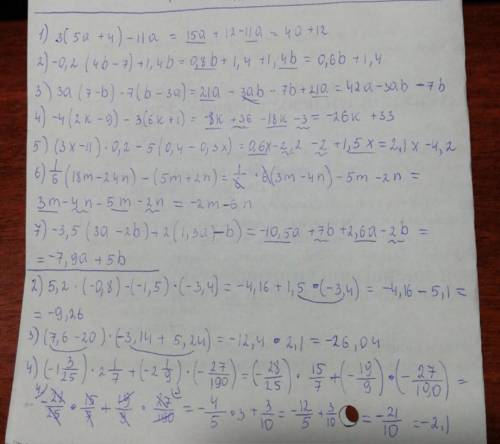 1) 3(5a+4)-11a = 15a+12-11a = 4a+12
2) -0,2(4b-7)+1,4b = 0,8b+1,4+1,4b = 0,6b+1,4
3) 3a(7-b)-7(b-3a) = 21a-3ab-7b+21a = 42a-3ab-7b
4) -4(2k-9)-3(6k+1) = -8k+36-18k-3 = -26k+33
5) (3x-11)·0,2-5(0,4-0,3x) = 0,6x-2,2-2+1,5x = 2,1x-4,2
6) 1/6(18m-24n)-(5m+2n) = 1/6·6(3m-4n)-5m-2n =
3m-4n-5m-2n = -2m-6n
7) -3,5(3a-2b)+2(1,3a-b) = -10,5a+7b+2,6a-2b =
= -7,9a+5b
2) 5,2·(-0,8)-(-1,5)·(-3,4) = -4,16+1,5·(-3,4) = -4,16-5,1 =
= -9,26
3) (7,6-20)·(-3,14+5,24) = -12,4·2,1 = -26,04
4) (-1 3/25)·2 1/7+(-2 1/9)·(-27/190) = (-28/25)·15/7+(-19/9)·(-27/190) =
-28/25·15/7+19/9·27/190 = -4/5·3+3/10 = -12/5+3/10 = -21/10 = -2,1